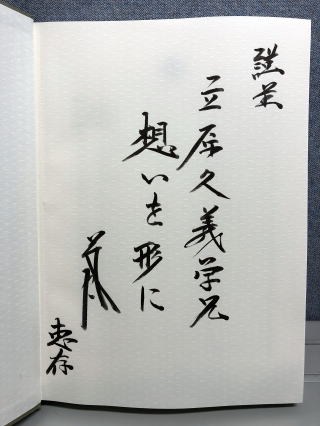 立原久義学兄
想いを形に
恵存